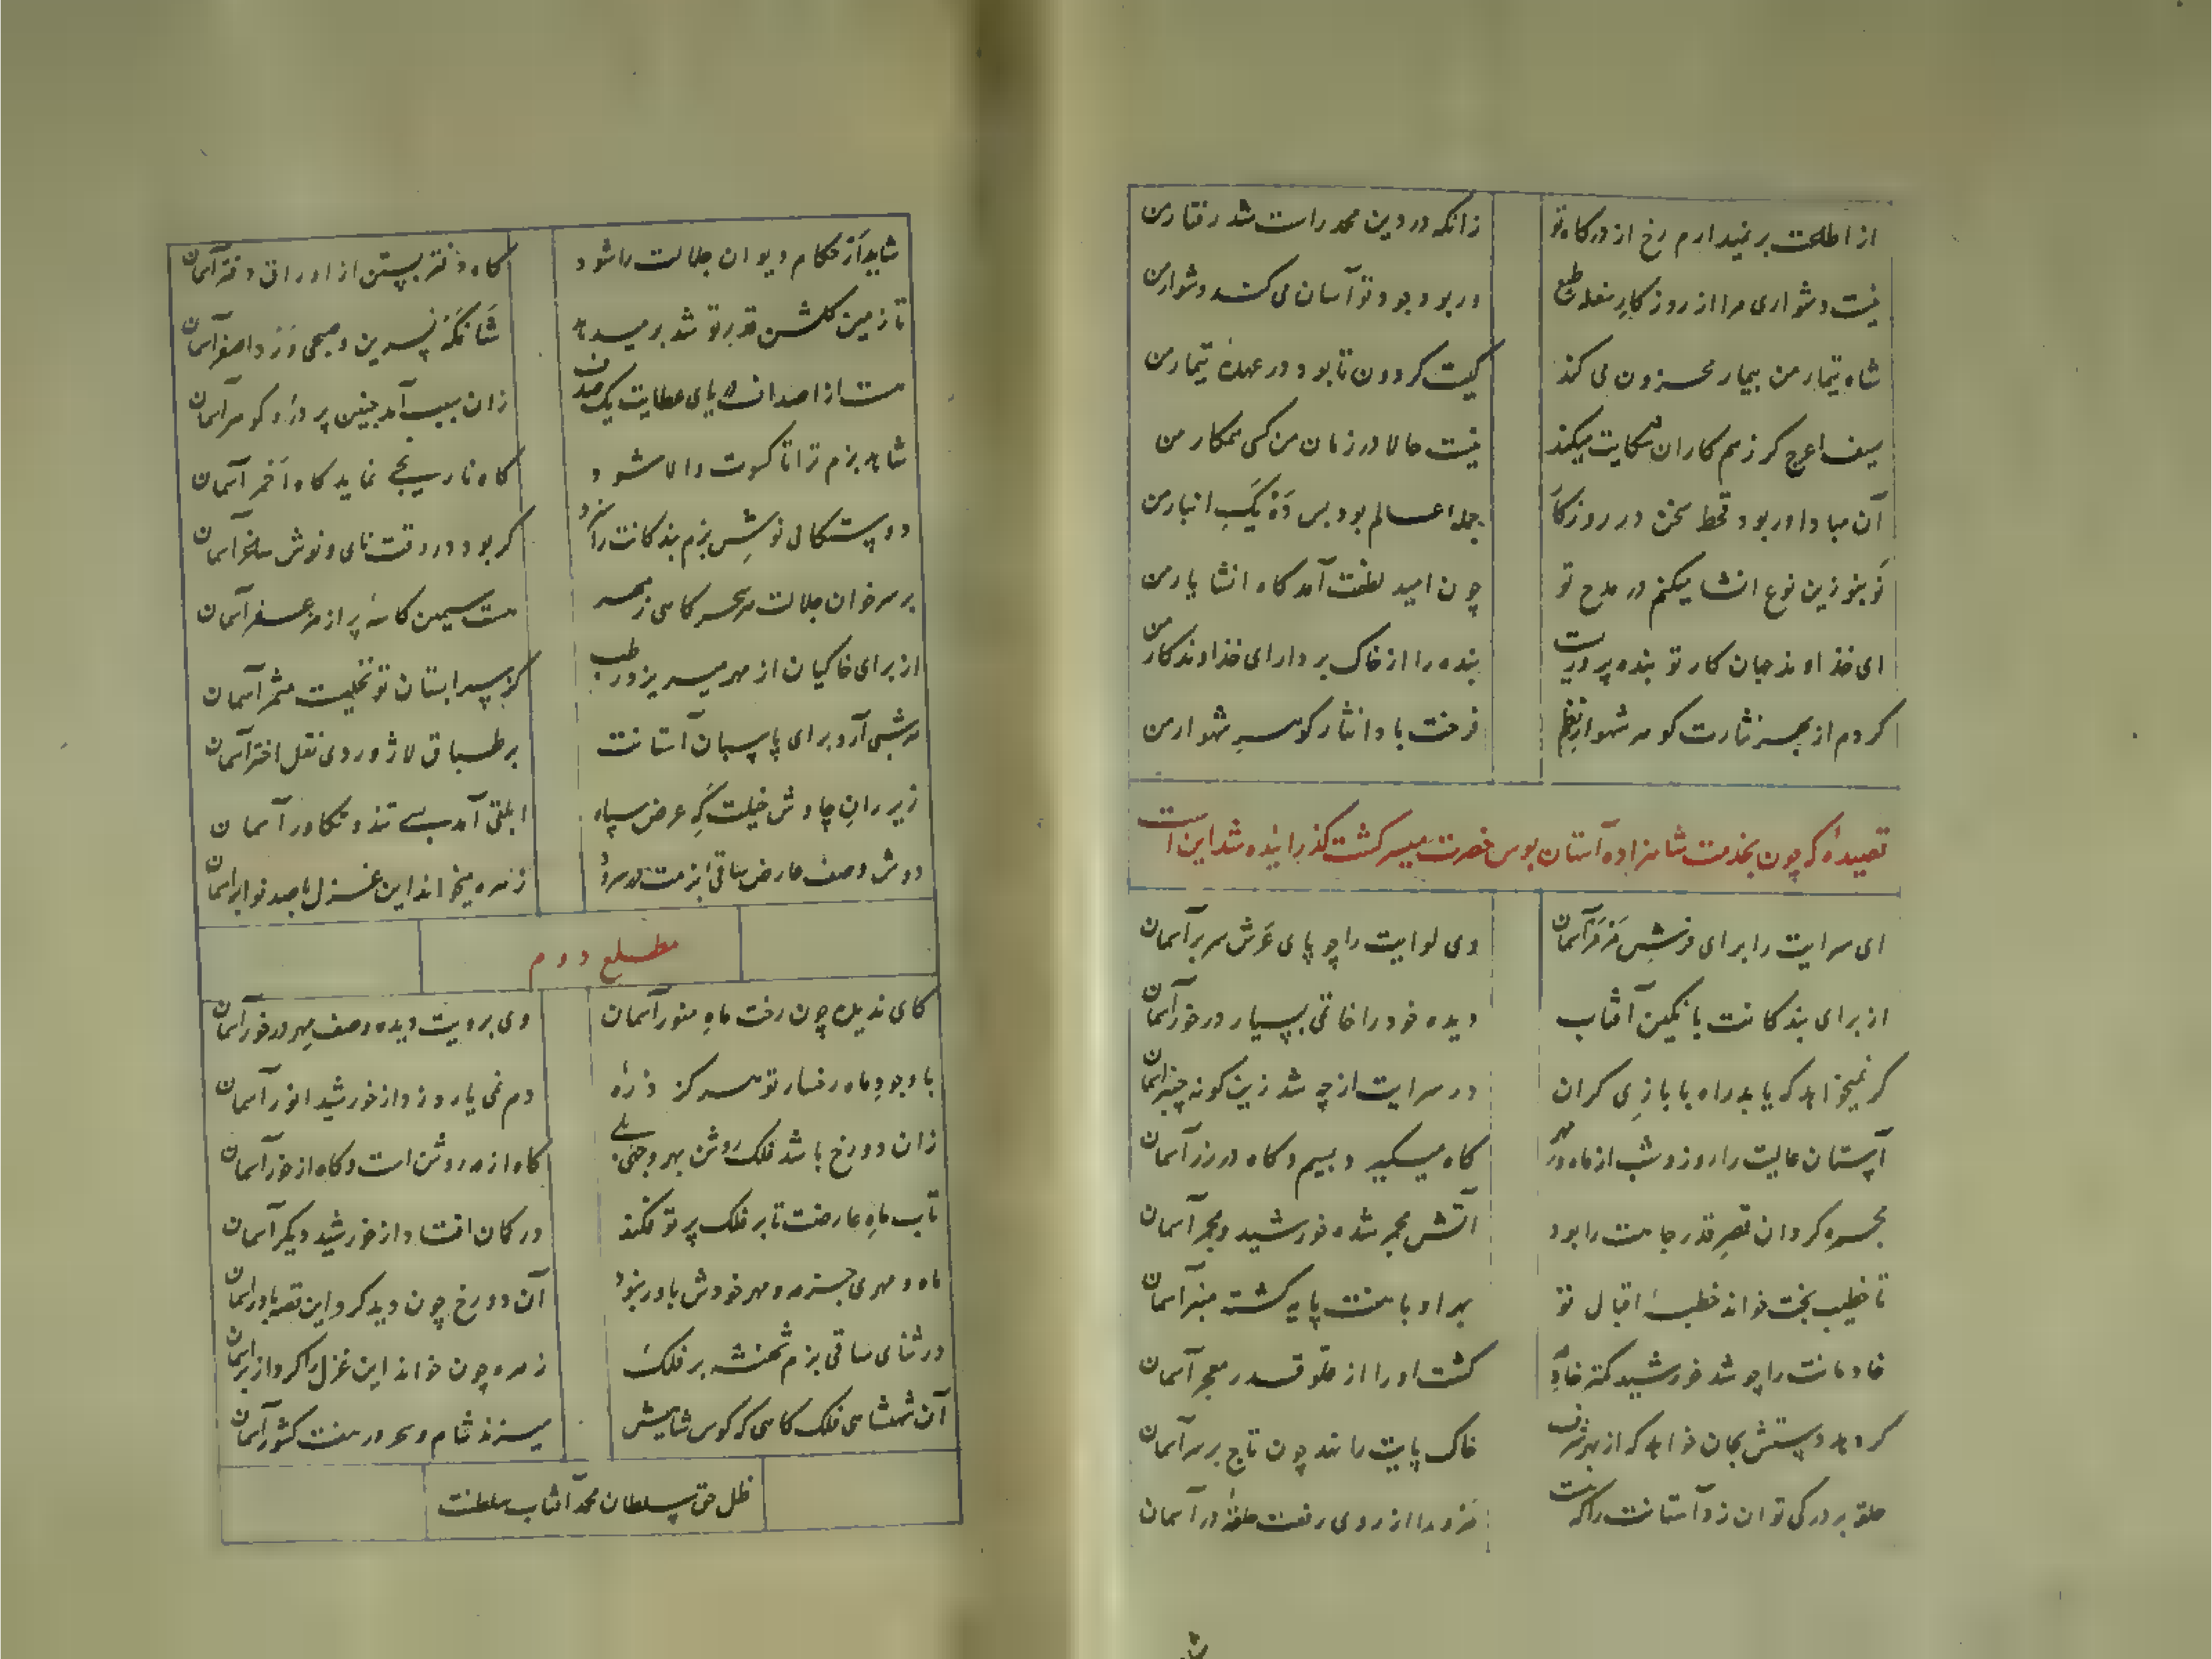 از اطلعت برنمیدارم رخ از درکاه تو زانکه در دین محمد راست شد رفتار من
نیست دشواری مرا از روزکار طبع ور بود جود تو آسان می کند دشوار من
شاه تیمار من بیمار محزون می کند کیست کردون تا بود در عهدهٔ تیمار من
سیف اعرج کر زهم کاران شکایت میکند نیست حالا در زمان من کسی همکار من
آن مبادا ور بود قحط سخن در روزکار جمله عالم بود بس دهٔ یک انبار من
نو بنو زین نوع انشا میکنم در مدح تو چون امید لطفت آمد کاه انشا یار من
ای خداوند جهان کار تو بنده پرورست بنده را از خاک بردار ای خداوندکار من
کردم از بهر نثارت کوهر شهوار نظم فرخت بادا نثار کوهر شهوار من
قصیدهٔ که چون بخدمت شاهزاده آستان بوس حضرت میسر کشت کذرانیده شد این است
ای سرایت را برای فرش آسمان وی لوایت را چو پای عرش سر بر آسمان
از برای بندکانت با نکین آفتاب دیده خود را خاتمی بسیار در خور آسمان
کر نمیخواهد که یابد راه با بازی کران در سرایت از چه شد زین کونه چنبر آسمان
آستان عالیت را روز و شب از ماه و مهر کاه میکیرد بسیم و کاه در زر آسمان
مجمره کردان قصر قدر جاهت را بود آتش مجمر شده خورشید و مجمر آسمان
تا خطیب بخت خواند خطبهٔ اقبال تو بهر او با هفت پایه کشته منبر آسمان
خادمانت را چو شد خورشید کمتر خادم کشت او را از علو قدر معجر آسمان
کر دهد دستش بجان خواهد که از بهر شرف خاک پایت ماند چون تاج بر سر آسمان
حلقه بر در کی توان زد آستانت را که هست خرد را از روی رفعت حلقهٔ در آسمان
شاید از حکام دیوان جلالت را شود کاه دفتر بستن از اوراق دفتر آسمان
تا زمین کلشن قدر تو شد بر میدهد نسرین و صبحی آسمان
هست از اصداف دریای عطایت یک صدف زان سبب آمد چنین پر در و کوهر آسمان
شاهد بزم ترا تا کسوت والا شود کاه نارنجی نماید کاه اخضر آسمان
دوستکانی نوش بزم بندکانت را سزد کر بود در وقت نای و نوش ساغر آسمان
بر سر خوان جلالت هر سحرکاهی ز مهر هست سیمین کاسهٔ پر از مزعفر آسمان
از برای خاکیان از مهر میریزد رطب کوییا در بستان تو نخلیست مثمر آسمان
هر شبی آرد برای پاسبان آستانت بر طباق لاژوردی نقل اختر آسمان
زیر ران چاوش خیلت که عرض سپاه ابلقی آمد بسی تند و تکاور آسمان
دوش وصف عارض ساقی بزمت در سرود زهره میخواند این غزل با صد نوا بر آسمان
مطلع دوم
کای ندیده چون رخت ماه منور آسمان وی برویت دیده وصف مهر در خور آسمان
با وجود ماه رخسار تو هرکز ذرهٔ دم نمی یارد زد از خورشید انور آسمان
زان دو رخ باشد فلک روشن بهر وجهی بلی کاه از مه روشن است و کاه از خور آسمان
تاب ماه عارضت تا بر فلک پرتو فکند در کمان افتاد از خورشید دیکر آسمان
ماه و مهری جز مه و مهر خودش باور نبود آن دو رخ چون دید کرد این قصه باور آسمان
در ثنای ساقی بزم شهنشه بر فلک زهره چون خواند این غزل را کرد از بر آسمان
آن شهنشاهی فلک کاهی که کوس شاهیش میزند شام و سحر در هفت کشور آسمان
ظل حق سلطان محمد آفتاب سلطنت